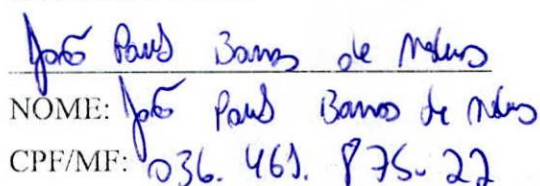 João Paulo Barros de Matos
NOME: João Paulo Barros de Matos
CPF/MF: 036.461.875-22